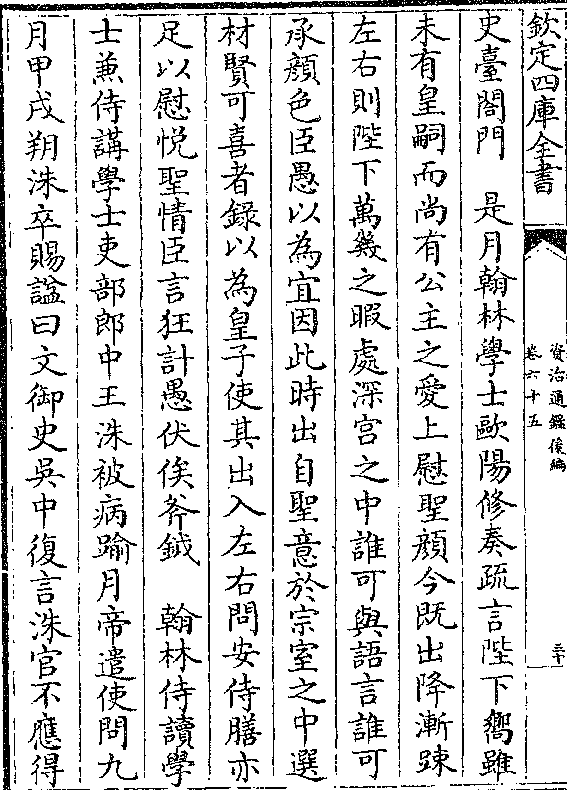 欽定四庫全書
資治通鑑後編
卷六十五
三十
史臺閤門　是月翰林學士歐陽修奏疏言陛下嚮雖
未有皇嗣而尚有公主之愛上慰聖顔今既出降漸踈
左右則陛下萬幾之暇處深宫之中誰可與語言誰可
承顔色臣愚以為宜因此時出自聖意於宗室之中選
材賢可喜者錄以為皇子使其出入左右問安侍膳亦
足以慰悦聖情臣言狂計愚伏俟斧鉞　翰林侍讀學
士兼侍講學士吏部郎中王洙被病踰月帝遣使問九
月甲戌朔洙卒賜諡曰文御史吳中復言洙官不應得